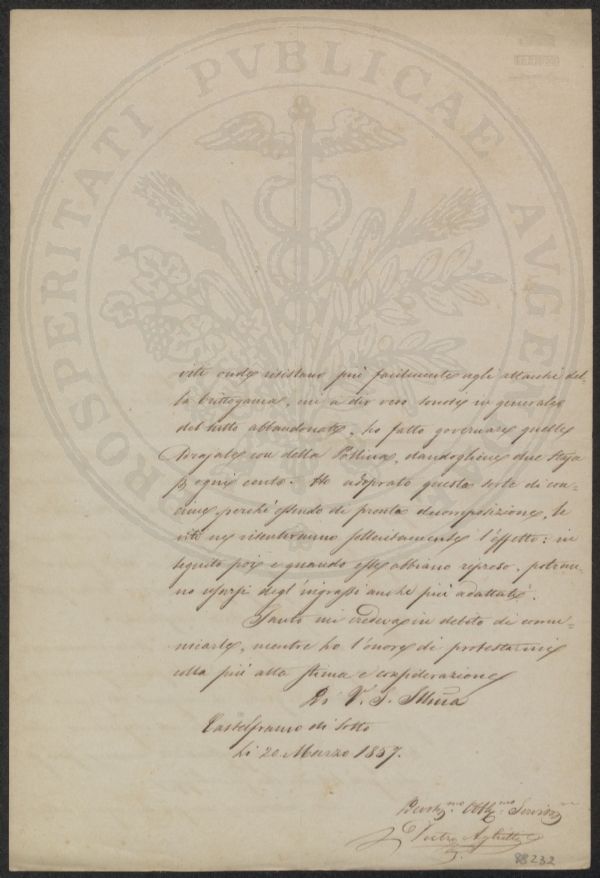 PROSPERITATI PVBLICAE AVGE
viti onde resistano più facilmente agli attacchi del-
la Crittogama, ed a dir vero sendo in generale
del tutto abbandonate, ho fatto governare quelle
con della Pollina, dandogliene due Staja
ogni cento. Ho adoprato questa sorte di con-
cime perchè essendo di pronta decomposizione, le
viti ne risentiranno sollecitamente l'effetto: in
seguito poi e quando esse abbiano ripreso, potran-
no usarsi degl'ingrassi anche più adattati.
Tanto mi credevo in debito di comu-
nicarle, mentre ho l'onore di protestarmi
colla più alta stima e considerazione
Di V. S. Illma
Castelfranco di Sotto
Li 20 Marzo 1857.
Devmo Obbmo Servitore
Pietro
98232